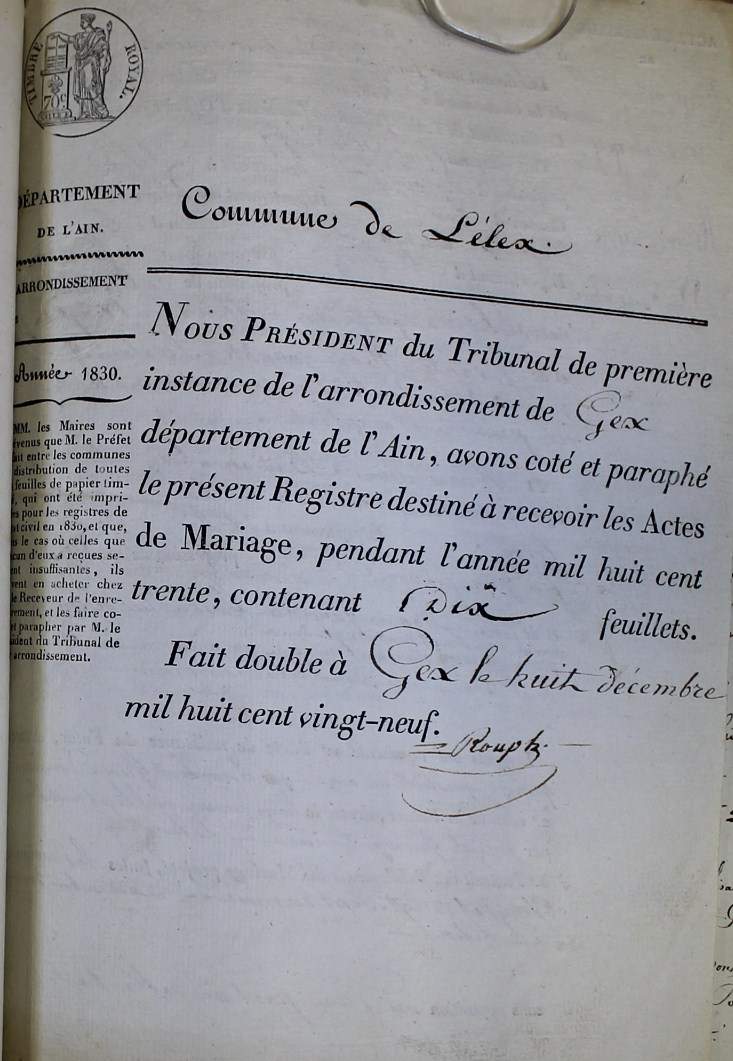 TIMBRE ROYAL.
70c
DÉPARTEMENT
DE L'AIN.
ARRONDISSEMENT
Année 1830.
MM. les Maires sont
venus que M. le Préfet
ait entre les communes
distribution de toutes
feuilles de papier tim-
, qui ont été impri-
es pour les registres de
at civil en 1830, et que,
s le cas où celles que
cun d'eux a reçues se-
ent insuffisantes, ils
vent en acheter chez
le Receveur de l'enre-
rement, et les faire co-
et parapher par M. le
sident du Tribunal de
arrondissement.
Commune de Lélex.
NOUS PRÉSIDENT du Tribunal de première
instance de l'arrondissement de Gex
département de l'Ain, avons coté et paraphé
le présent Registre destiné à recevoir les Actes
de Mariage, pendant l'année mil huit cent
trente, contenant Dix feuillets.
Fait double à Gex le huit décembre
mil huit cent vingt-neuf.